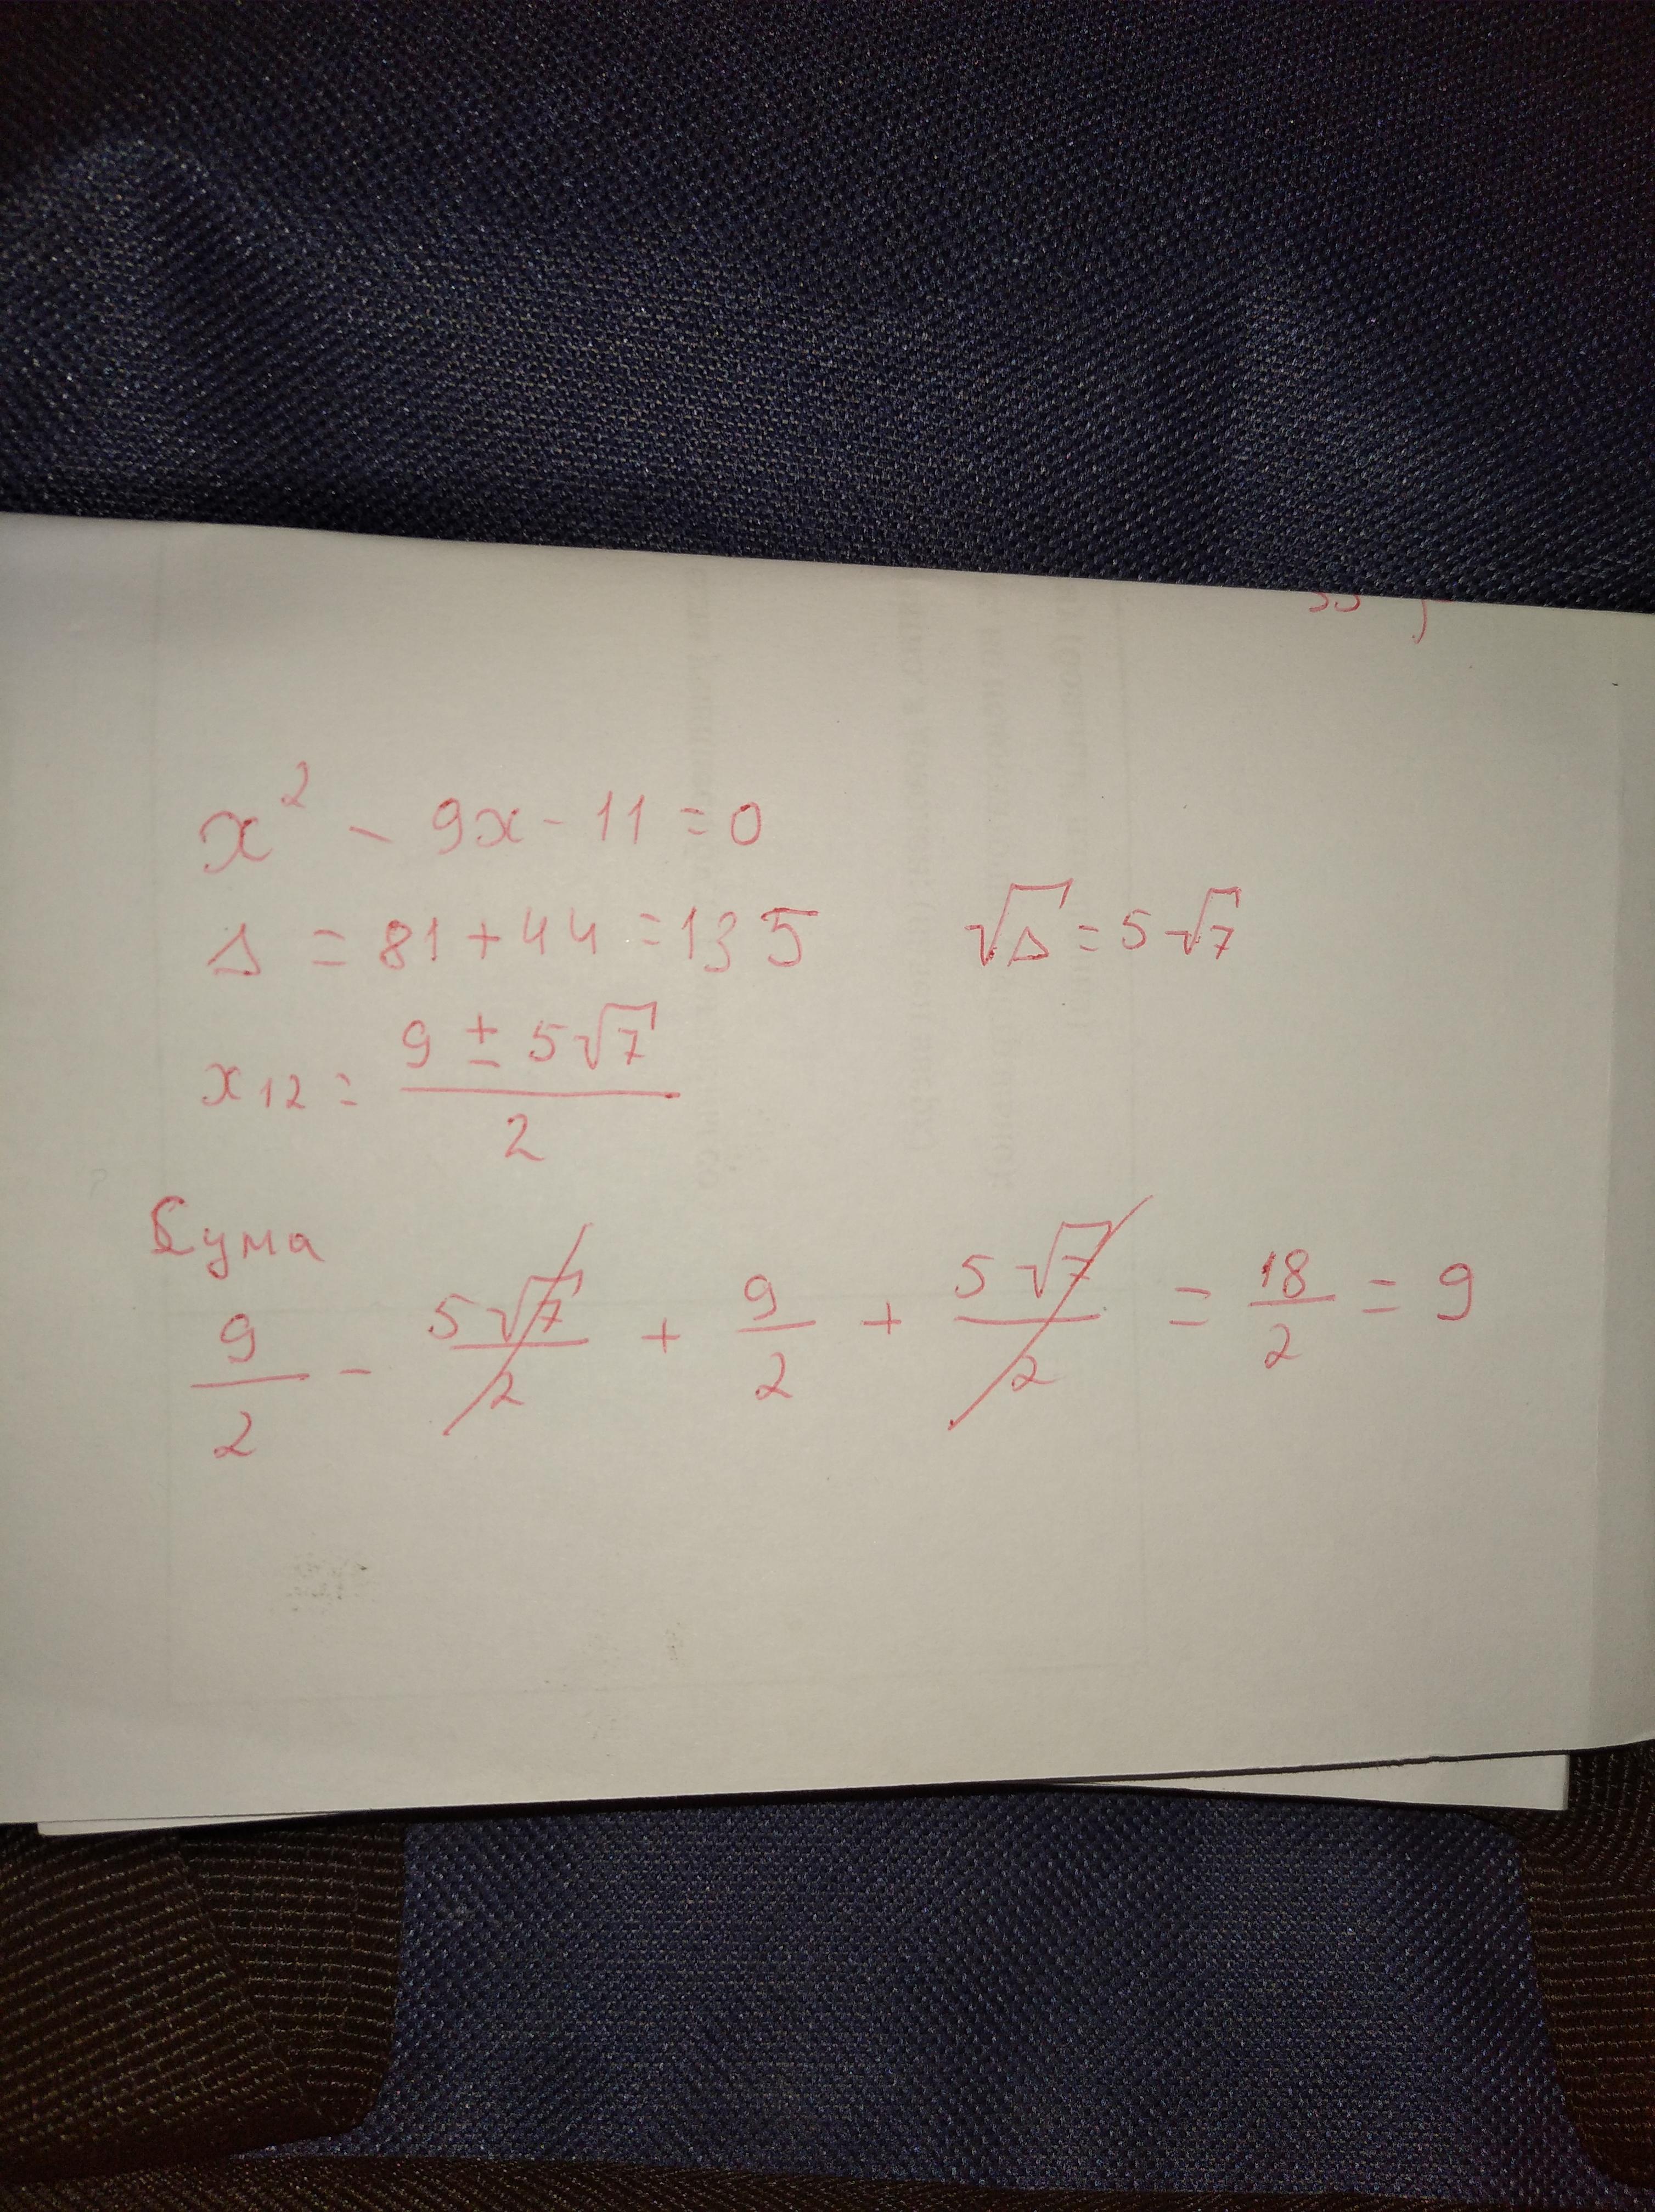 x² - 9x - 11 = 0
Δ = 81 + 44 = 135 √Δ = 5√7
x12 = (9 ± 5√7)/2
Сума
9/2 - 5√7/2 + 9/2 + 5√7/2 = 18/2 = 9